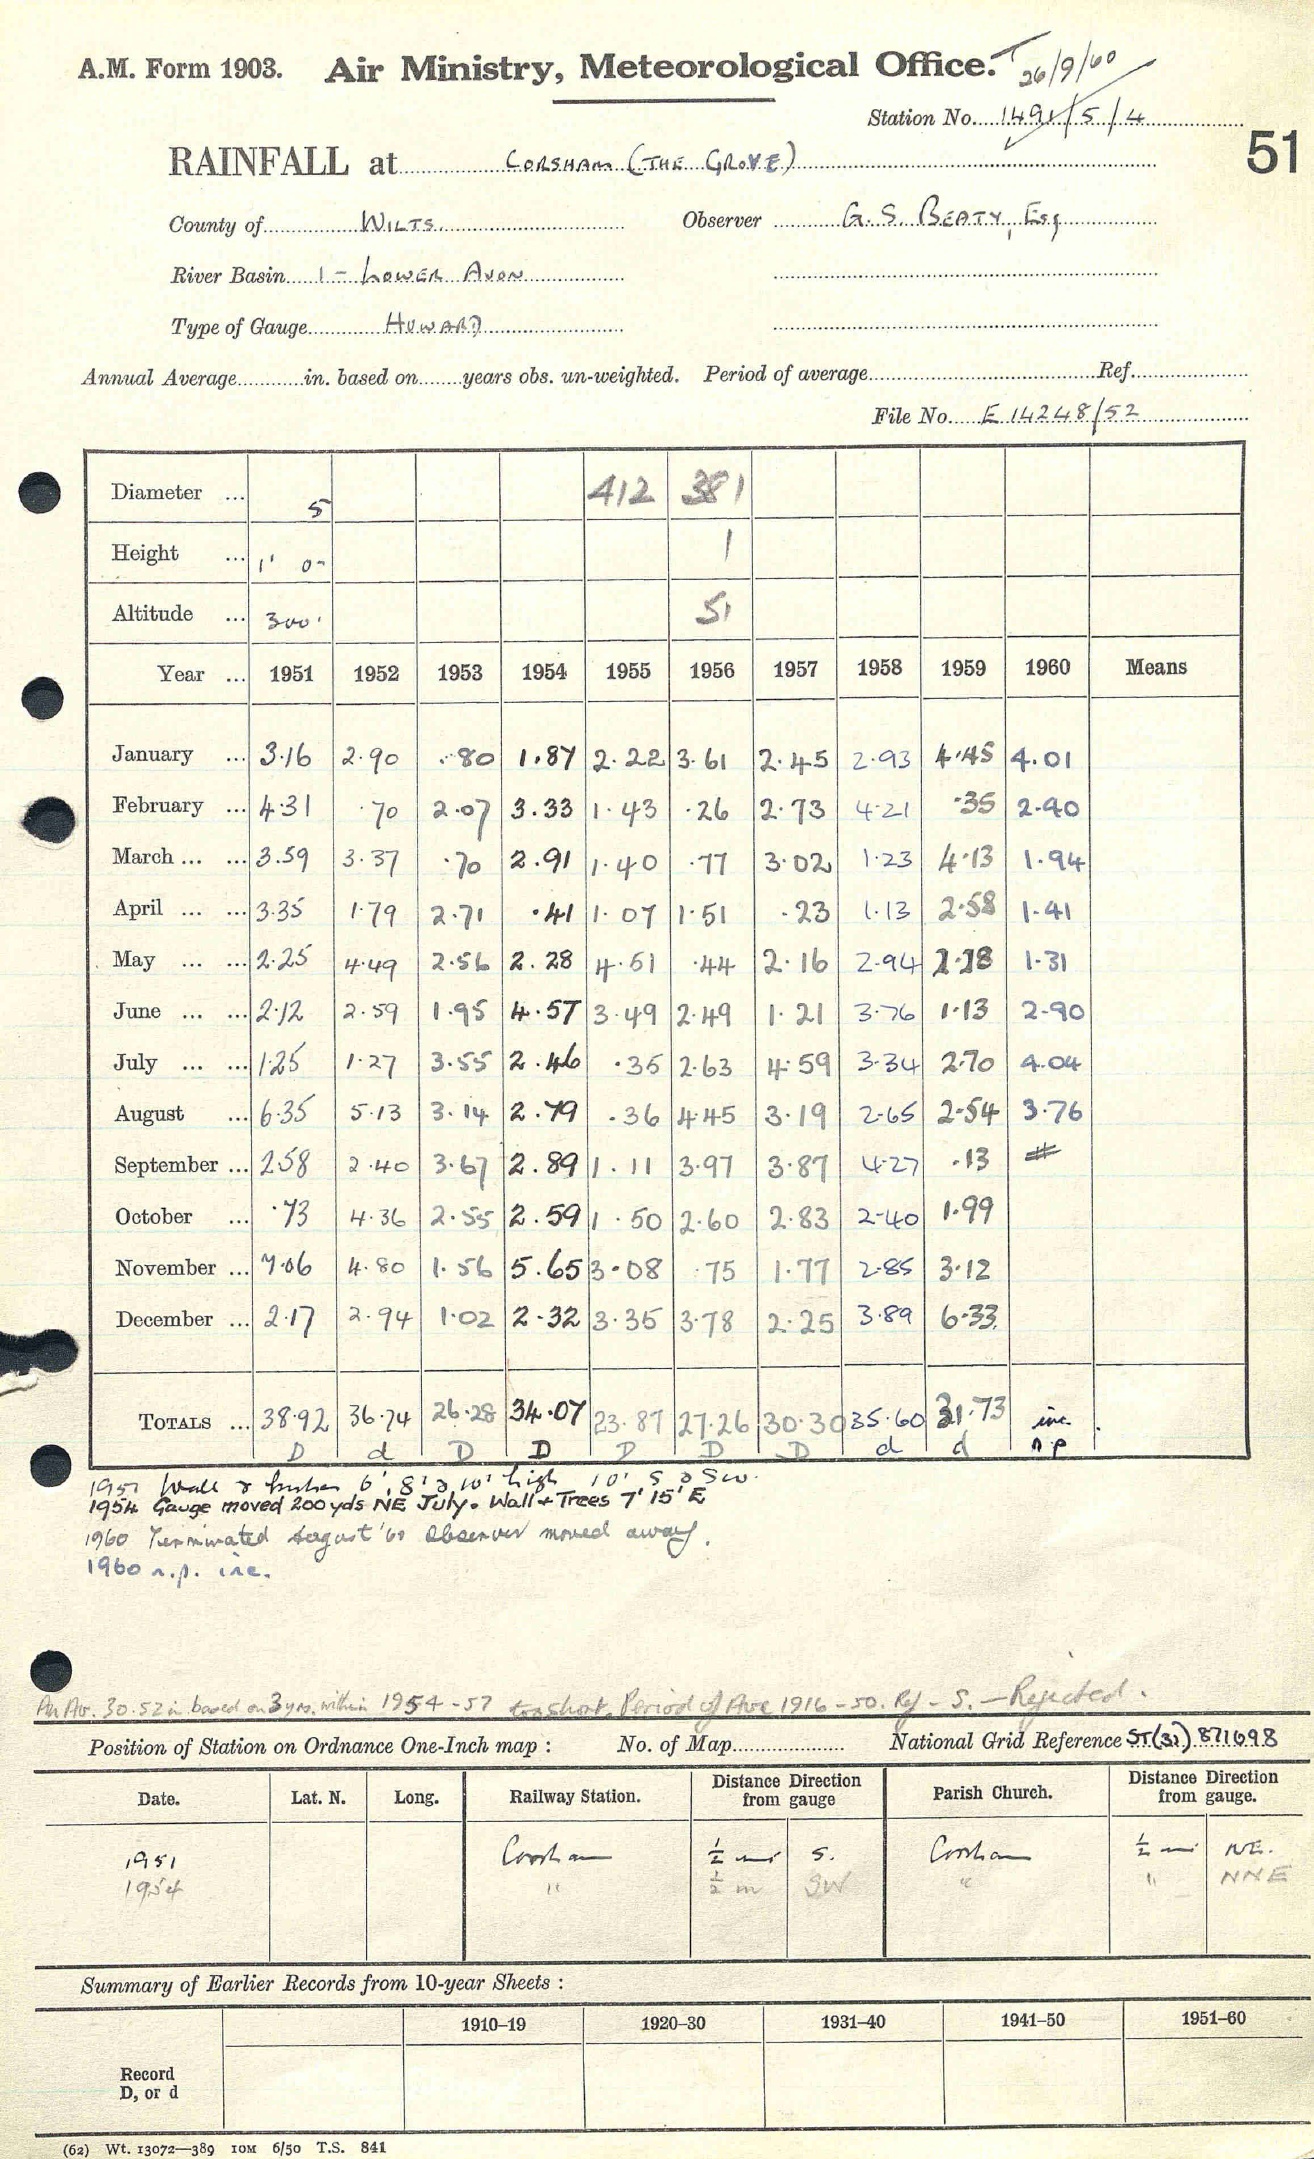 A.M. Form 1903. Air Ministry, Meteorological Office. T 26/9/60
Station No. 1491/5/4
51
RAINFALL at CORSHAM (THE GROVE)
County of WILTS. Observer G. S. BEATY, Esq
River Basin 1 - LOWER AVON
Type of Gauge HOWARD
Annual Average in. based on years obs. un-weighted. Period of average Ref.
File No. E 14248/52
Diameter ... 5 412 381
Height ... 1' 0" 1
Altitude ... 300' 51
Year ... 1951 1952 1953 1954 1955 1956 1957 1958 1959 1960 Means
January ... 3.16 2.90 .80 1.87 2.22 3.61 2.45 2.93 4.45 4.01
February ... 4.31 .70 2.07 3.33 1.43 .26 2.73 4.21 .35 2.90
March ... ... 3.59 3.37 .70 2.91 1.40 .77 3.02 1.23 4.13 1.94
April ... ... 3.35 1.79 2.71 .41 1.07 1.51 .23 1.13 2.58 1.41
May ... ... 2.25 4.49 2.56 2.28 4.51 .44 2.16 2.94 1.31
June ... ... 2.12 2.59 1.95 4.57 3.49 2.49 1.21 3.76 1.13 2.90
July ... ... 1.25 1.27 3.55 2.46 .35 2.63 4.59 3.34 2.70 4.04
August ... 6.35 5.13 3.14 2.79 .36 4.45 3.19 2.65 2.54 3.76
September ... 2.58 2.40 3.67 2.89 1.11 3.97 3.87 4.27 .13 #
October ... .73 4.36 2.55 2.59 1.50 2.60 2.83 2.40 1.99
November ... 7.06 4.80 1.56 5.65 3.08 .75 1.77 2.85 3.12
December ... 2.17 2.94 1.02 2.32 3.35 3.78 2.25 3.89 6.33
TOTALS ... 38.92 36.74 26.28 34.07 23.87 27.26 30.30 35.60 31.73 inc.
D d D D D D D d d n.p
1951 Wall & bushes 6', 8' & 10' high 10' S & SW.
1954 Gauge moved 200 yds NE July. Wall + Trees 7' 15' E
1960 Terminated August '60 Observer moved away.
1960 n.p. inc.
An Av. 30.52 in based on 3 yrs. within 1954-57 too short. Period of Ave 1916-50. Ref - S. - Rejected.
Position of Station on Ordnance One-Inch map : No. of Map National Grid Reference ST(31) 871698
Date. Lat. N. Long. Railway Station. Distance Direction from gauge Parish Church. Distance Direction from gauge.
1951 Corsham ½ mi S. Corsham ½ mi NE.
1954 " ½ m SW " " NNE
Summary of Earlier Records from 10-year Sheets :
1910-19 1920-30 1931-40 1941-50 1951-60
Record
D, or d
(62) Wt. 13072—389 10M 6/50 T.S. 841